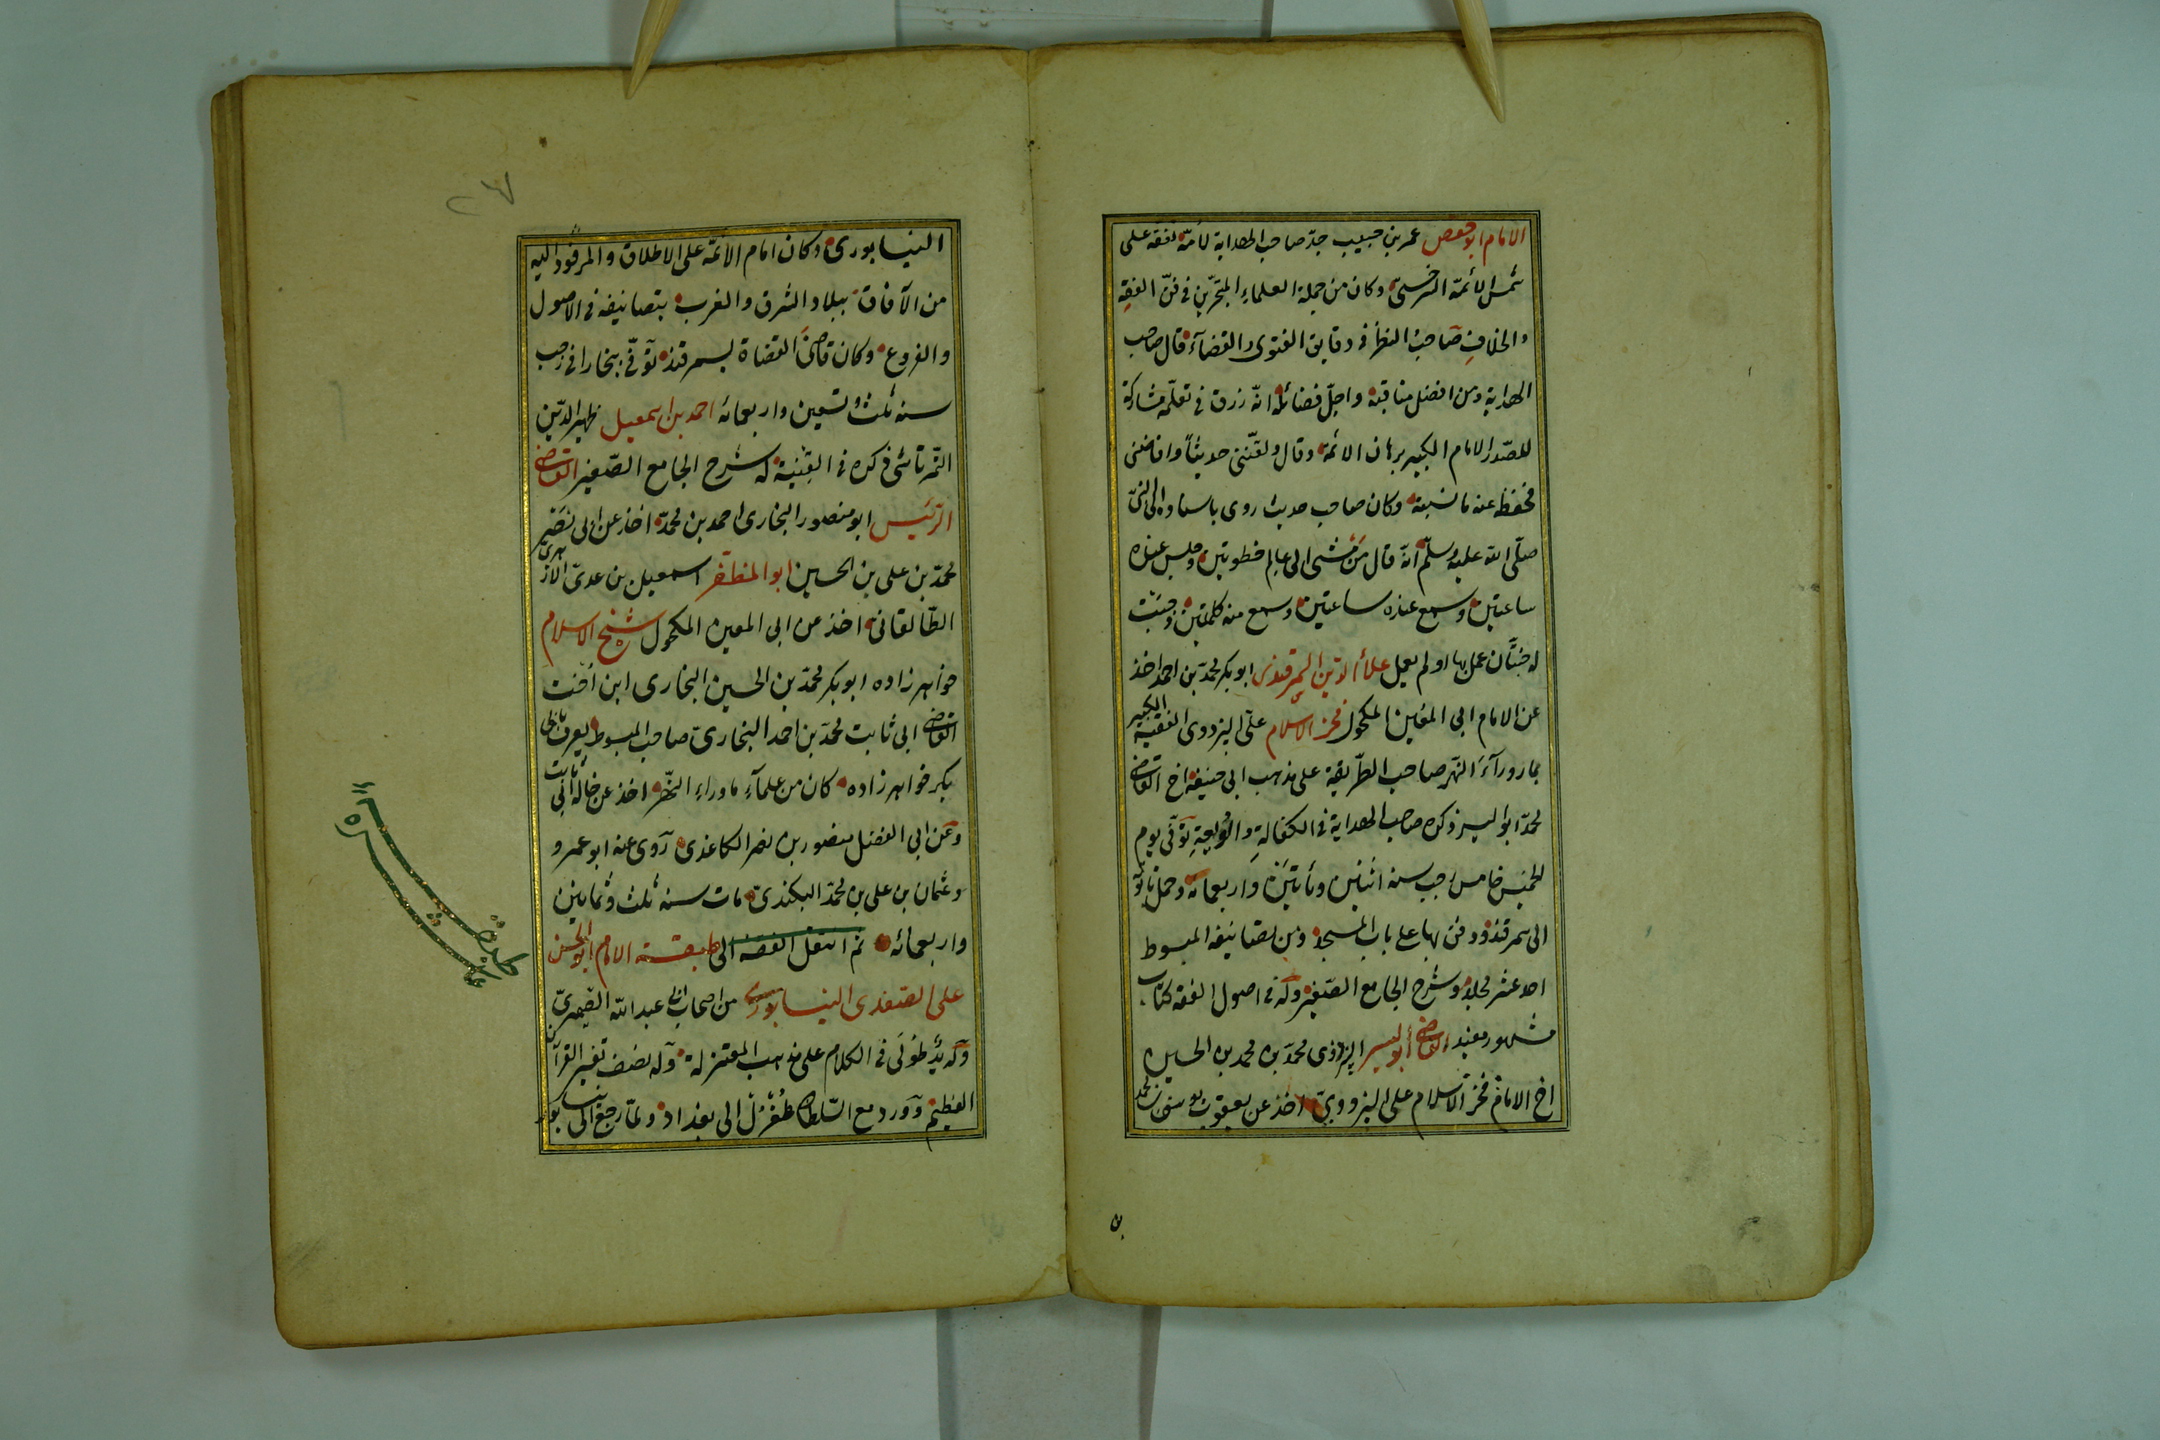 الامام ابو حفص عمر بن حبيب جدّ صاحب الهداية لأمّه تفقه على
شمس الأئمّة السرخسىّ وكان من جملة العلماء المتبحّرين فى فنّ الفقه
والخلاف صاحب النظر فى دقايق الفتوى والقضآء قال صاحب
الهداية ومن افضل مناقبه واجلّ فضائله انّه رزق فى تعلّمه مشاركة
للصّدر الامام الكبير برهان الائمّة وقال ولقّننى حديثاً وافاضنى
فحفظ عنه ما نسيته وكان صاحب حديث روى باسناده الى النبىّ
صلّى اللّه عليه وسلّم انّه قال من مشى الى عالم خطوتين وجلس عنده
ساعتين وسمع عنده ساعتين وسمع منه كلمتين وجبت
له جنّتان عمل بها او لم يعمل علاء الدين السمرقندى ابو بكر محمّد بن احمد اخذ
عن الامام ابى المعين المكحول فخر الاسلام علىّ البزدوى الفقيه الكبير
بما ورآء النهر صاحب الطّريقة على مذهب ابى حنيفة اخ القاضى
محمّد ابو اليسر ذكره صاحب الهداية فى الكفالة والوديعة توفّى يوم
الخميس خامس رجب سنه اثنين وثمانين واربعمائه وحمل تابوته
الى سمرقند ودفن بها على باب المسجد ومن تصانيفه المبسوط
احد عشر مجلد وشرح الجامع الصّغير وله فى اصول الفقه كتاب
مشهور مفيد القاضى أبو اليسر البزدوى محمّد بن محمد بن الحسين
اخ الامام فخر الاسلام على البزدوىّ اخذ عن يعقوب يوسف بن محمد
بن
النيسابورى وكان امام الائمّة على الاطلاق والمرفود اليه
من الآفاق ببلاد الشرق والغرب بتصانيفه فى الاصول
والفروع وكان قاضى القضاة بسمرقند توفّى ببخارا فى رجب
سنه ثلث وتسعين واربعمائه احمد بن اسمعيل ظهير الدّين
التّمرتاشى ذكره فى القنية له شرح الجامع الصّغير القاضى
الرّئيس ابو منصور البخارى احمد بن محمّد اخذ عن ابى نصر
محمّد بن على بن الحسين ابو المظفر اسمعيل بن عدىّ الازهرى
الطّالقانى اخذ من ابى المعين المكحول شيخ الاسلام
خواهر زاده ابو بكر محمّد بن الحسين البخارى ابن أخت
القاضى ابى ثابت محمّد بن احمد البخارىّ صاحب المبسوط يعرف بابى
بكر خواهر زاده كان من علمآء ماوراء النّهر اخذ عن خاله أبى ثابت
وعن ابى الفضل منصور بن نصر الكاغدى روى عنه ابو عمرو
وعثمان بن على بن محمّد البيكندىّ مات سنه ثلث وثمانين
واربعمائه ثم انتقل الفقه الى طبقة الامام ابو الحسن
على الصّغدى النيسابورى من اصحاب ابى عبد اللّه الصّيمرىّ
وله يد طولى فى الكلام على مذهب المعتزلة وله يصنف تفسير القرآن
العظيم وورد مع السّلطان طغرل الى بغداد ولمّا رجع الى نيسابور